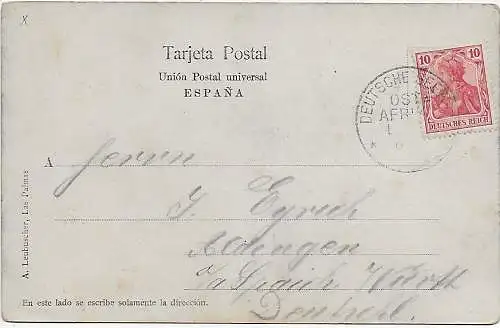 X
Tarjeta Postal
Unión Postal universal
ESPAÑA
10 10
DEUTSCHES REICH
DEUTSCHE
OST
AFR
A
Herrn
J. Eyrich
Aldingen
Spaich. Württ
Deutschl.
A. Leubuscher, Las Palmas
En este lado se escribe solamente la dirección.